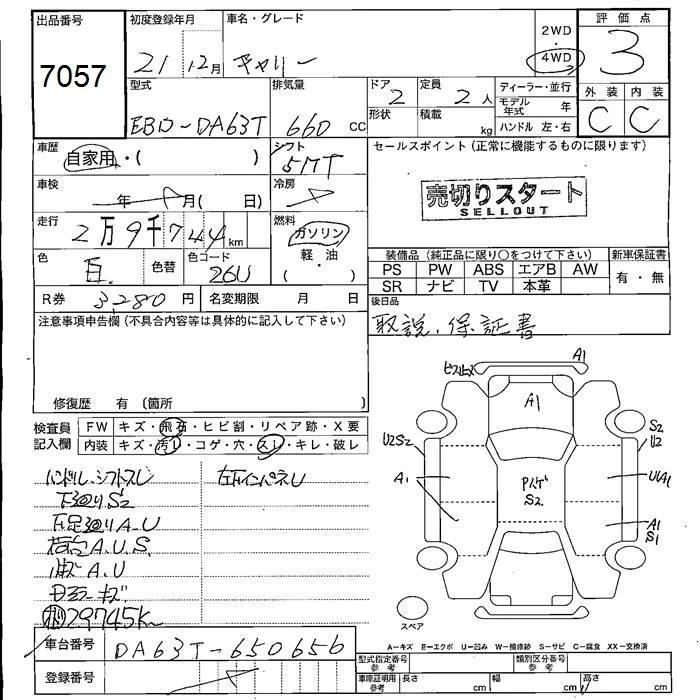 出品番号
7057
初度登録年月
21 12月
車名・グレード
キャリー
2WD
・
4WD
評価点
3
外装 内装
C C
型式
EBD-DA63T
排気量
660 CC
ドア
2
形状
定員
2 人
積載
kg
ディーラー・並行
モデル年式 年
ハンドル 左・右
車歴
自家用・( )
シフト
5MT
セールスポイント (正常に機能するものに限ります)
売切りスタート
SELLOUT
車検
年 月( 日)
冷房
走行
2万9千744km
燃料
ガソリン
軽・油
・
( )
色
白
色替
色コード
26U
装備品 (純正品に限り○をつけて下さい)
新車保証書
PS PW ABS エアB AW
SR ナビ TV 本革
有・無
R券 3,280円
名変期限 月 日
後日品
取説、保証書
注意事項申告欄 (不具合内容等は具体的に記入して下さい)
修復歴 有 (箇所 )
検査員
記入欄
FW キズ・飛石・ヒビ割・リペア跡・X要
内装 キズ・汚レ・コゲ・穴・スレ・キレ・破レ
ハンドル、シフトスレ
左下インパネU
下廻りS2
下足廻りA.U
荷台A.U.S.
A.U
ミラーキズ
29745K
A1
A1
S2
U2
U2S2
A1
U1A1
S2
A1
S1
スペア
A-キズ E-エクボ U-凹み W-補修跡 S-サビ C-腐食 XX-交換済
車台番号
DA63T-650656
登録番号
型式指定番号
参考
類別区分番号
参考
車庫証明用
参考
長さ cm
幅 cm
高さ cm